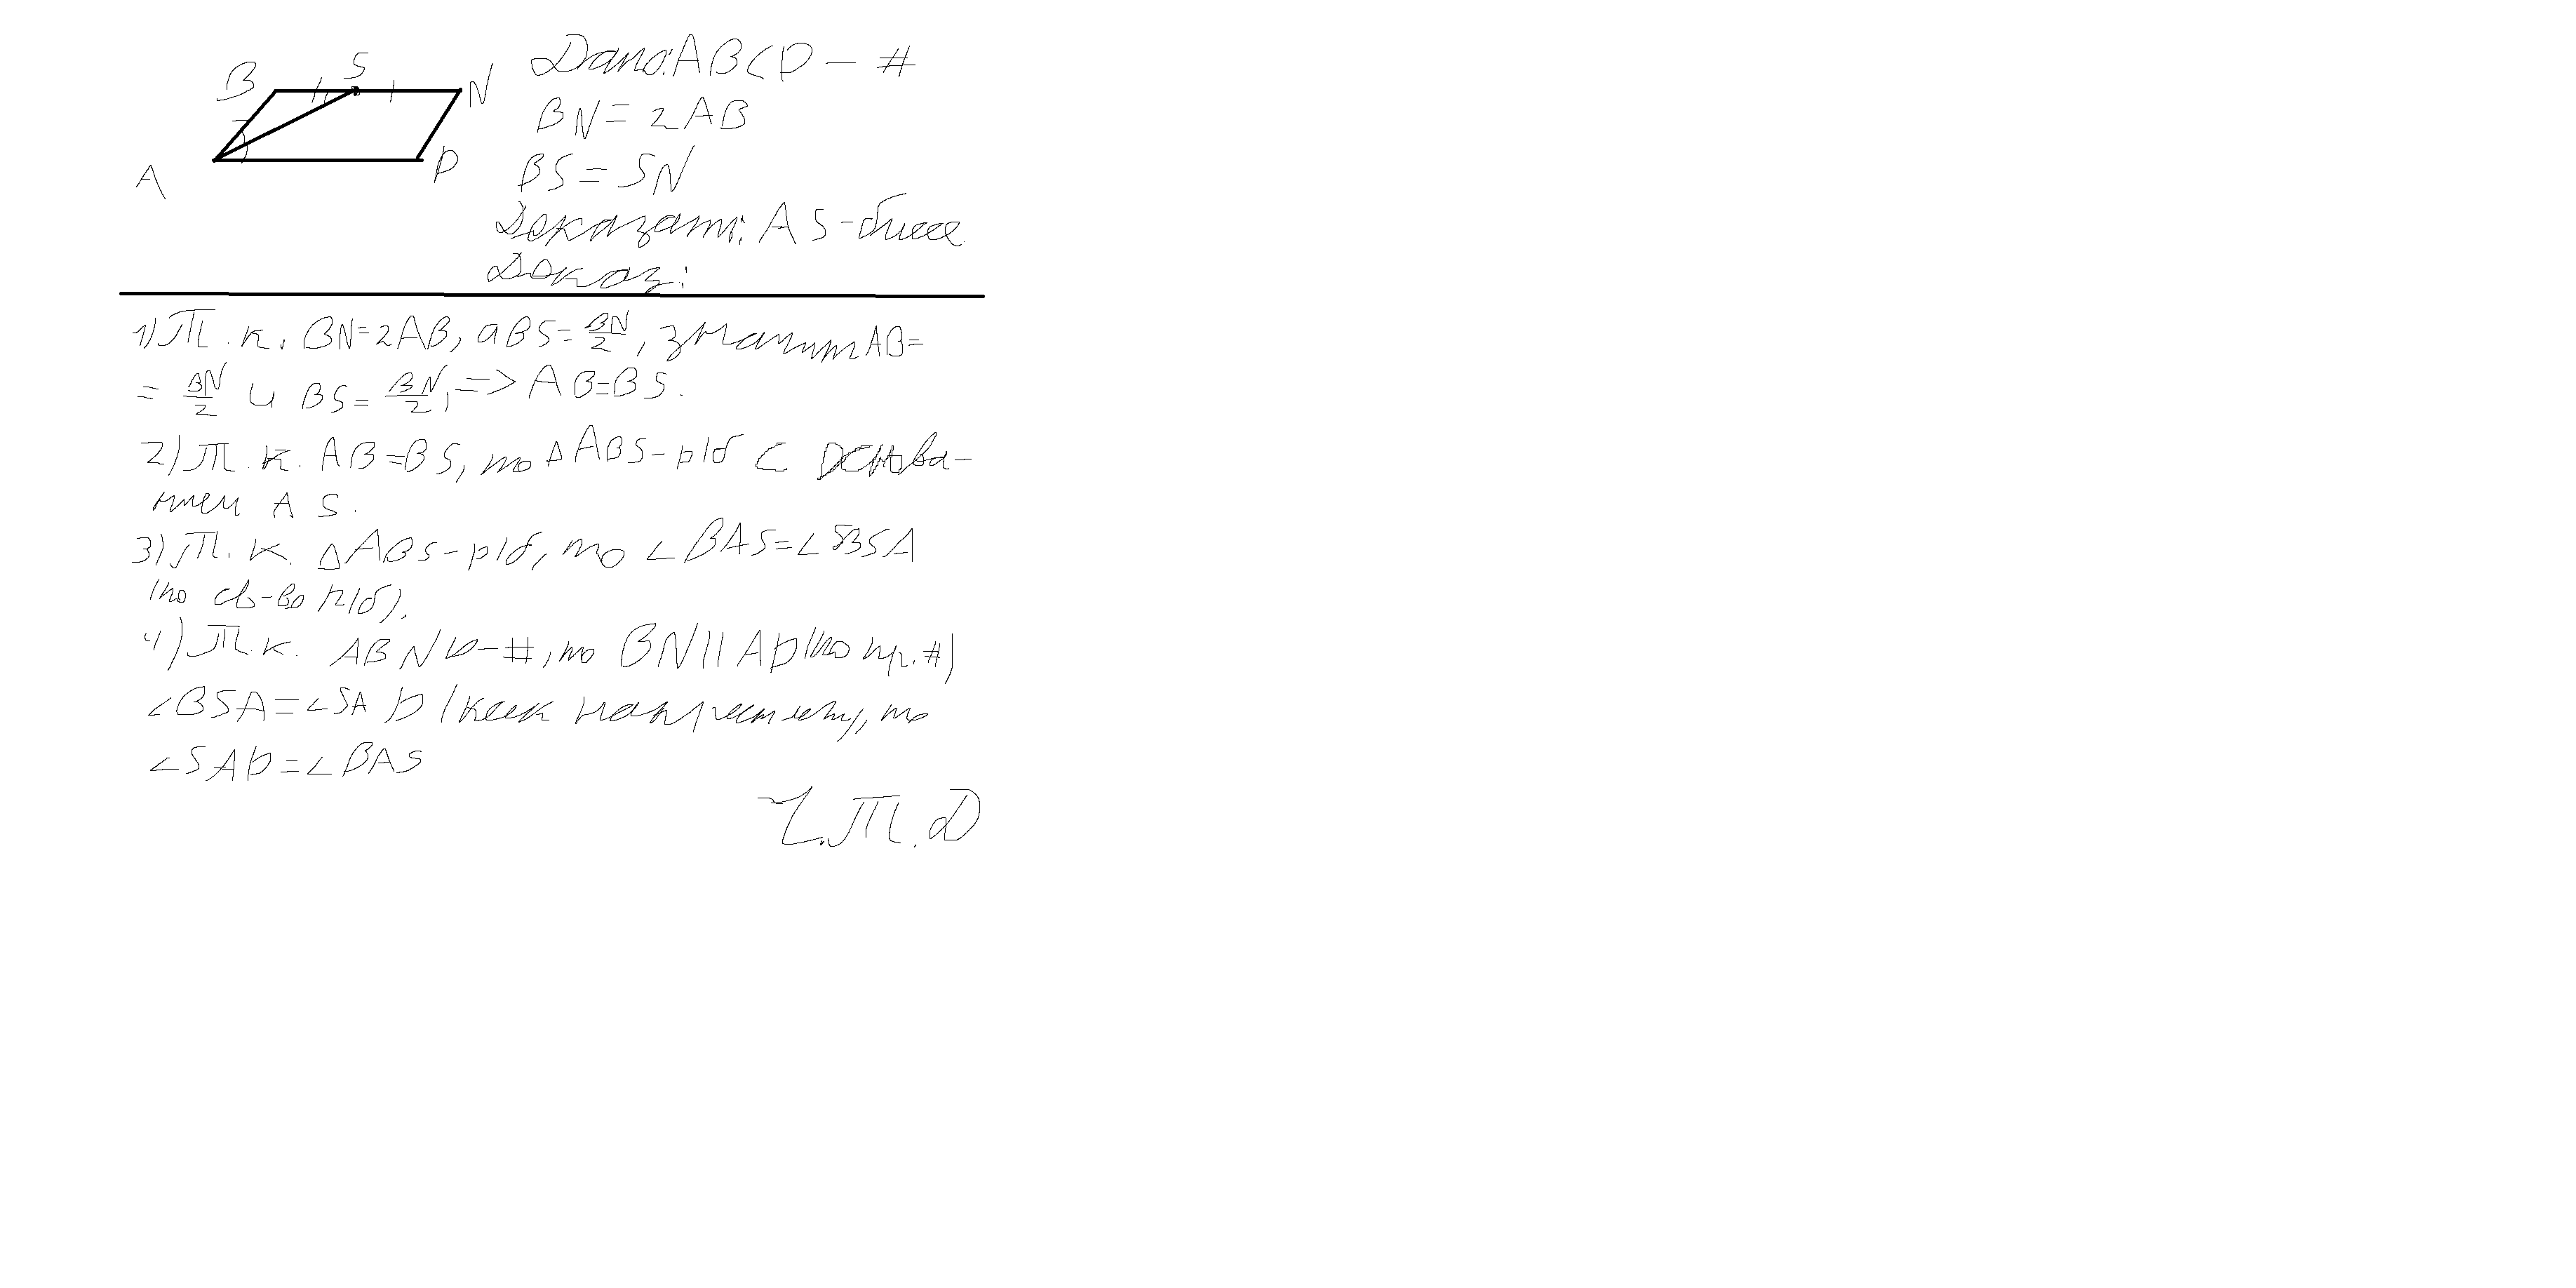 B S N
A D
Дано: ABCD - #
BN = 2AB
BS = SN
Доказать: AS - бисс.
Доказ:
1) Т.к. BN=2AB, а BS= BN/2, значит AB=
= BN/2 и BS= BN/2, => AB=BS.
2) Т.к. AB=BS, то △ABS-р/б с основа-
нием AS.
3) Т.к. △ABS-р/б, то ∠BAS=∠BSA
(по св-во р/б).
4) Т.к. ABND-#, то BN || AD (по пр.#)
∠BSA=∠SAD (как накрест леж), то
∠SAD=∠BAS
Ч.Т.Д